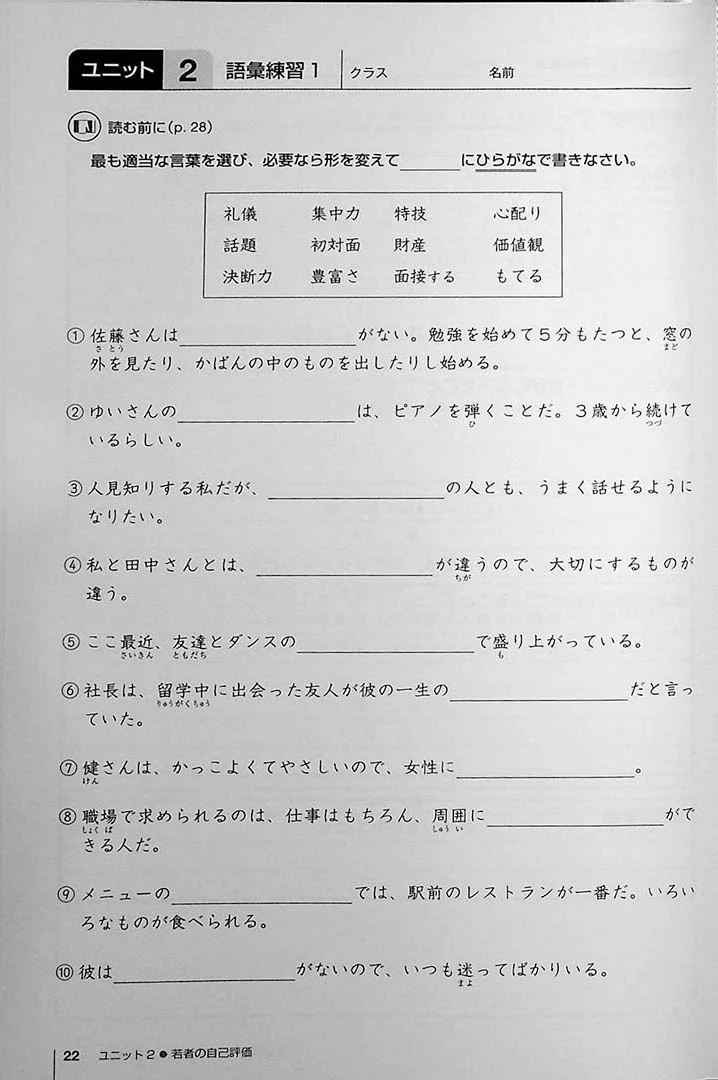 ユニット 2 語彙練習1 クラス 名前
読む前に(p. 28)
最も適当な言葉を選び、必要なら形を変えて______にひらがなで書きなさい。
礼儀 集中力 特技 心配り
話題 初対面 財産 価値観
決断力 豊富さ 面接する もてる
①佐藤さんは______がない。勉強を始めて5分もたつと、窓の
さとう まど
外を見たり、かばんの中のものを出したりし始める。
②ゆいさんの______は、ピアノを弾くことだ。3歳から続けて
ひ つづ
いるらしい。
③人見知りする私だが、______の人とも、うまく話せるように
なりたい。
④私と田中さんとは、______が違うので、大切にするものが
ちが
違う。
⑤ここ最近、友達とダンスの______で盛り上がっている。
さいきん ともだち も
⑥社長は、留学中に出会った友人が彼の一生の______だと言っ
りゅうがくちゅう
ていた。
⑦健さんは、かっこよくてやさしいので、女性に______。
けん
⑧職場で求められるのは、仕事はもちろん、周囲に______がで
しょくば しゅうい
きる人だ。
⑨メニューの______では、駅前のレストランが一番だ。いろい
ろなものが食べられる。
⑩彼は______がないので、いつも迷ってばかりいる。
まよ
22 ユニット2●若者の自己評価